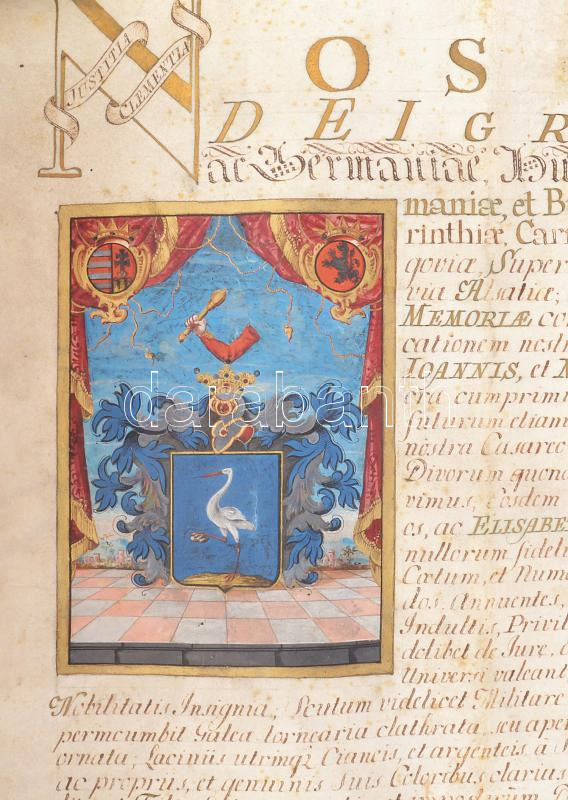 NOS
JUSTITIA
CLEMENTIA
DEI GR
ac Germaniae, Hu
maniæ, et B
rinthiæ, Car
goviæ, Super
via Alsatiæ;
MEMORIÆ co
cationem nostr
IOANNIS, et M
era cumprimi
futurum etiam
nostra Cæsareo
Divorum quond
vimus, Eosdem
os, ac ELISABE
nullorum fideli
Cœtum, et Nume
dos, Annuentes,
Indultis, Privil
delibet de Iure,
Universi valeant
Nobilitatis Insignia, Scutum videlicet Militare
permcumbit Galea tornearia clathrata, seu ape
ornata; Laciniis utrinqz Cianeis, et argenteis a S
ac propriis, et genuinis suis Coloribus clarius
darabanth